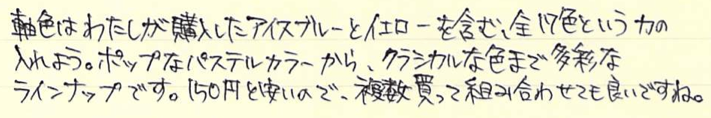 軸色はわたしが購入したアイスブルーとイエローを含む、全17色という力の
入れよう。ポップなパステルカラーから、クラシカルな色まで多彩な
ラインナップです。150円と安いので、複数買って組み合わせても良いですね。